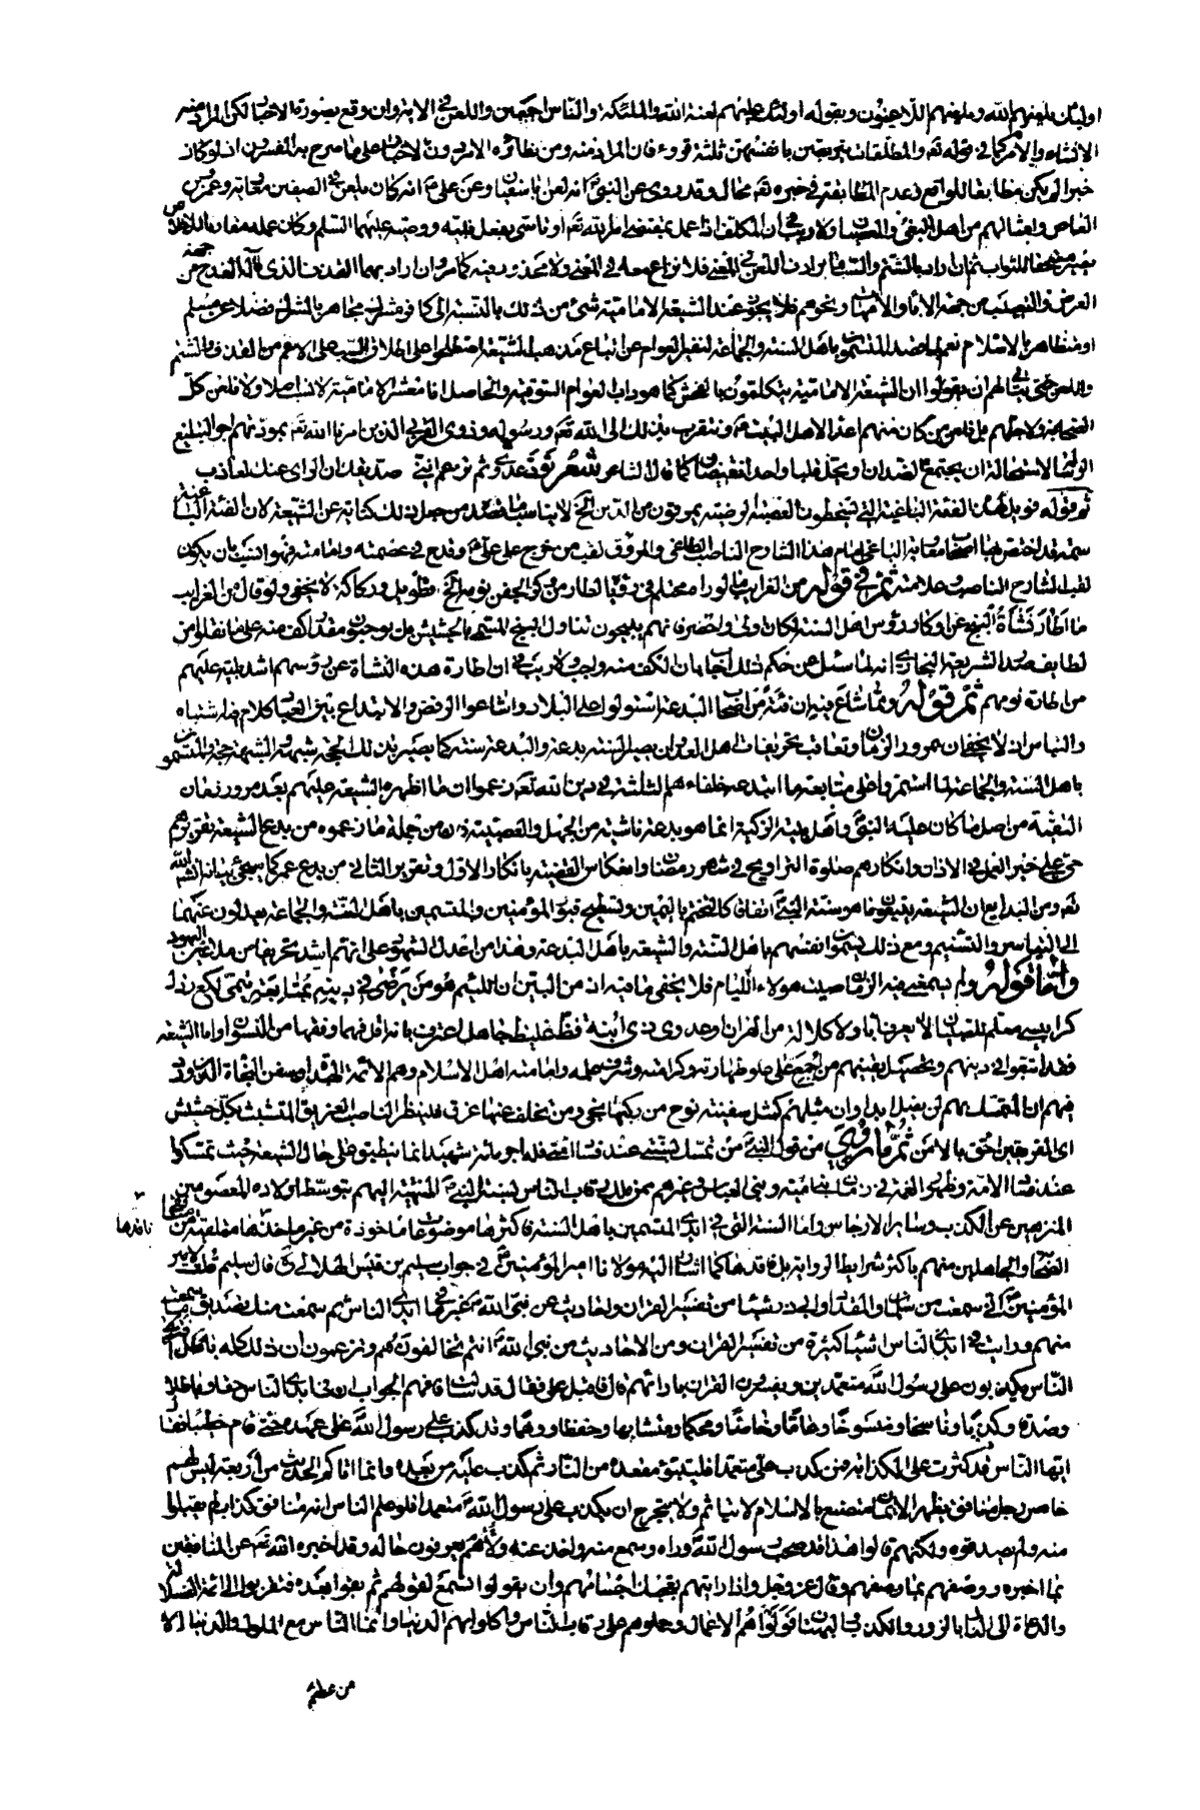 اولئك يلعنهم الله ويلعنهم اللاعنون وبقوله اولئك عليهم لعنة الله والملئكة والناس اجمعين واللعن في الاية وان وقع بصورة الاخبار لكن المراد منه
الانشاء والامر كما في قوله تع والمطلقات يتربصن بانفسهن ثلثة قروء فان المراد منه ومن نظائره الامر دون الاخبار على ما صرح به المفسرون اذ لو كان
خبرا لم يكن مطابقا للواقع وعدم المطابقة في خبره تع محال وقد روى عن النبي انه لعن ابا سفيان وعن علي انه كان يلعن في الصفين معاوية وعمرو بن
العاص وامثالهم من اهل البغي والعصيان ولا ريب في ان المكلف اذا عمل بمقتضى امر الله تع او تاسى بفعل نبيه ووصيه عليهما السلم وكان عمله مقارنا للاخلاص
يصير مستحقا للثواب ثم ان اراد بالشتم والسب ما يرادف اللعن في المعنى فلا نزاع معه في المعنى ولا محذور فيه كما مر وان اراد بهما القذف الذي
العرض والنصب من جهة الاباء والامهات ونحوهم فلا يجوز عند الشيعة الامامية شئ من ذلك بالنسبة الى كافر مشرك مجاهر بالشرك فضلا عن مسلم
او متظاهر بالاسلام نعم لما قصد المتسمون باهل السنة والجماعة تنفير العوام عن اتباع مذهب الشيعة اصطلحوا على اطلاق السب على الاعم من القذف والشتم
واللعن حتى يتأتى لهم ان يقولوا ان الشيعة الامامية يتكلمون بالفحش كما هو داب العوام السوقية والحاصل انا معشر الامامية لا نسب اصلا ولا نلعن كل
الصحابة ولا جلهم بل نلعن من كان منهم اعداء لاهل البيت ونتقرب بذلك الى الله تع ورسوله وذوي القربى الذين امرنا الله تع بمودتهم اجر التبليغ
الرسالة لاستحالة ان يجتمع الضدان ويحل قلبا واحدا نقيضان كما قال الشاعر شعر تود عدوي ثم تزعم انني صديقك ان الراي عنك لعازب
ثم قوله فويل لهذه الفئة الباغية التي يسخطون العصبة الرضية يمرقون من الدين الخ لا يناسب ما قصد من جعل ذلك كناية عن الشيعة لان الفئة الباغية
سمة قد اختص بها اصحاب معاوية الباغي امام هذا الشارح الناصب الطاغي والمروق لقب من خرج على علي وقدح في عصمته وامامته فهو انسب بان يكون
لقبا لشارح الناصب وعلامته ثم في قوله من الغرايب ما لو راه محتلم في رؤياه لطار من وكر الجفن نومه الخ تطويل وركاكة لا يخفى ولو قال من الغرايب
ما اطار نشأة البنج عن اوكار رؤس اهل السنة لكان اولى واخصر فانهم يبيحون تناول البنج المسمى بالحشيش بل يوجبون مقدار كف منه على ما نقلوا من
لطايف صدر الشريعة البخاري انه لما سئل عن حكم تلك اجاب بان الكف منه واجب ولا ريب في ان اطارة هذه النشأة عن رؤسهم اشد بلية عليهم
من اطارة نومهم ثم قوله ومما شاع بنيان فئة من اصحاب البدعة استولوا على البلاد واشاعوا الرفض والابتداع بين العباد كلام فيه اشتباه
والتباس اذ لا يخفى ان بمرور الزمان وتعاقب تحريفات اهل العدوان يصير السنة بدعة والبدعة سنة كما يصير بذلك الحجة شبهة والشبهة حجة والمتسمون
باهل السنة والجماعة لما استمروا على متابعة ما ابتدعه خلفاءهم الثلثة في دين الله تع زعموا ان ما اظهره الشيعة عليهم بعد مرور زمان
التقية من اصل ما كان عليه النبي واهل بيته الزكية انما هو بدعة ناشية من الجهل والعصبية فان من جملة ما زعموه من بدع الشيعة تقريرهم
حي على خير العمل في الاذان وانكارهم صلوة التراويح في شهر رمضان وانعكاس القضية بانكار الاول وتقرير الثاني من بدع عمر كما سيجئ بيانه انشاء الله
تع ومن البدايع ان الشيعة يتبعون ما هو سنة النبي اتفاقا كالتختم باليمين وتسطيح قبور المؤمنين والمتسمين باهل السنة والجماعة يعدلون عنهما
الى اليسار والتسنيم ومع ذلك يسموا انفسهم باهل السنة والشيعة باهل البدعة وهذا من اعدل الشهود على انهم اشد تحريفا من ملاعين اليهود
واما قوله ولم يبتغ فيه الزمان هؤلاء اللئام فلا يخفى ما فيه اذ من البين ان اللئيم هو من يرضى في دينه بمتابعة بتمي لكع رذل
كرابيسي معلم للصبيان لا يعرف ابا ولا كلالة من القران وعدوي ذي ابنة فظ غليظ جاهل اعترف بانه اقل فهما وفقها من النسوان واما الشيعة
فقد استقوا في دينهم وتحصيل يقينهم من اجمع على علو طهارته وكرامته وشرف علمه وامامته اهل الاسلام وهم الائمة الهداة وسفن النجاة الذين ورد
فيهم ان المتمسك بهم لن يضل ابدا وان مثلهم كمثل سفينة نوح من ركبها نجى ومن تخلف عنها غرق فلينظر الناصب الغريق المتشبث بكل حشيش
اي الفريقين احق بالامن ثم ما روي من قول النبي من تمسك بسنتي عند فساد امتي فله اجر مائة شهيد انما ينطبق على حال الشيعة حيث تمسكوا
عند فساد الامة وظهور الغمة في زمان بني امية وبني العباس وغيرهم ممن ملك رقاب الناس بسنة النبي المنتهية اليهم بتوسط اولاده المعصومين
المنزهين عن الكذب وساير الارجاس واما السنة التي في ايدي المتسمين باهل السنة فاكثرها موضوعات ماخوذة من غير ماخذها متلقية من
الصحابة والجاهلين منهم باكثر شرايط الرواية بل فاقدها كما اشار اليه مولانا امير المؤمنين في جواب سليم بن قيس الهلالي قال سليم قلت لامير
المؤمنين اني سمعت من سلمان والمقداد وابي ذر شيئا من تفسير القران واحاديث عن نبي الله غير ما في ايدي الناس ثم سمعت منك تصديق ما سمعت
منهم ورايت في ايدي الناس اشياء كثيرة من تفسير القران ومن الاحاديث عن نبي الله انتم تخالفونهم وتزعمون ان ذلك كله باطل افترى
الناس يكذبون على رسول الله متعمدين ويفسرون القران بارائهم قال فاقبل علي فقال قد سئلت فافهم الجواب ان في ايدي الناس حقا وباطلا
وصدقا وكذبا وناسخا ومنسوخا وعاما وخاصا ومحكما ومتشابها وحفظا ووهما وقد كذب على رسول الله على عهده حتى قام خطيبا فقال
ايها الناس قد كثرت على الكذابة فمن كذب علي متعمدا فليتبوء مقعده من النار ثم كذب عليه من بعده وانما اتاكم الحديث من اربعة ليس لهم
خامس رجل منافق يظهر الايمان متصنع بالاسلام لا يتاثم ولا يتحرج ان يكذب على رسول الله متعمدا فلو علم الناس انه منافق كذاب لم يقبلوا
منه ولم يصدقوه ولكنهم قالوا هذا قد صحب رسول الله وراه وسمع منه واخذ عنه ولا هم يعرفون حاله وقد اخبره الله تع عن المنافقين
بما اخبره ووصفهم بما وصفهم وقال عز وجل واذا رايتهم تعجبك اجسامهم وان يقولوا تسمع لقولهم ثم بقوا بعده فتقربوا الى ائمة الضلالة
والدعاة الى النار بالزور والكذب والبهتان فولوهم الاعمال وحملوهم على رقاب الناس واكلوا بهم الدنيا وانما الناس مع الملوك والدنيا الا
من عظم